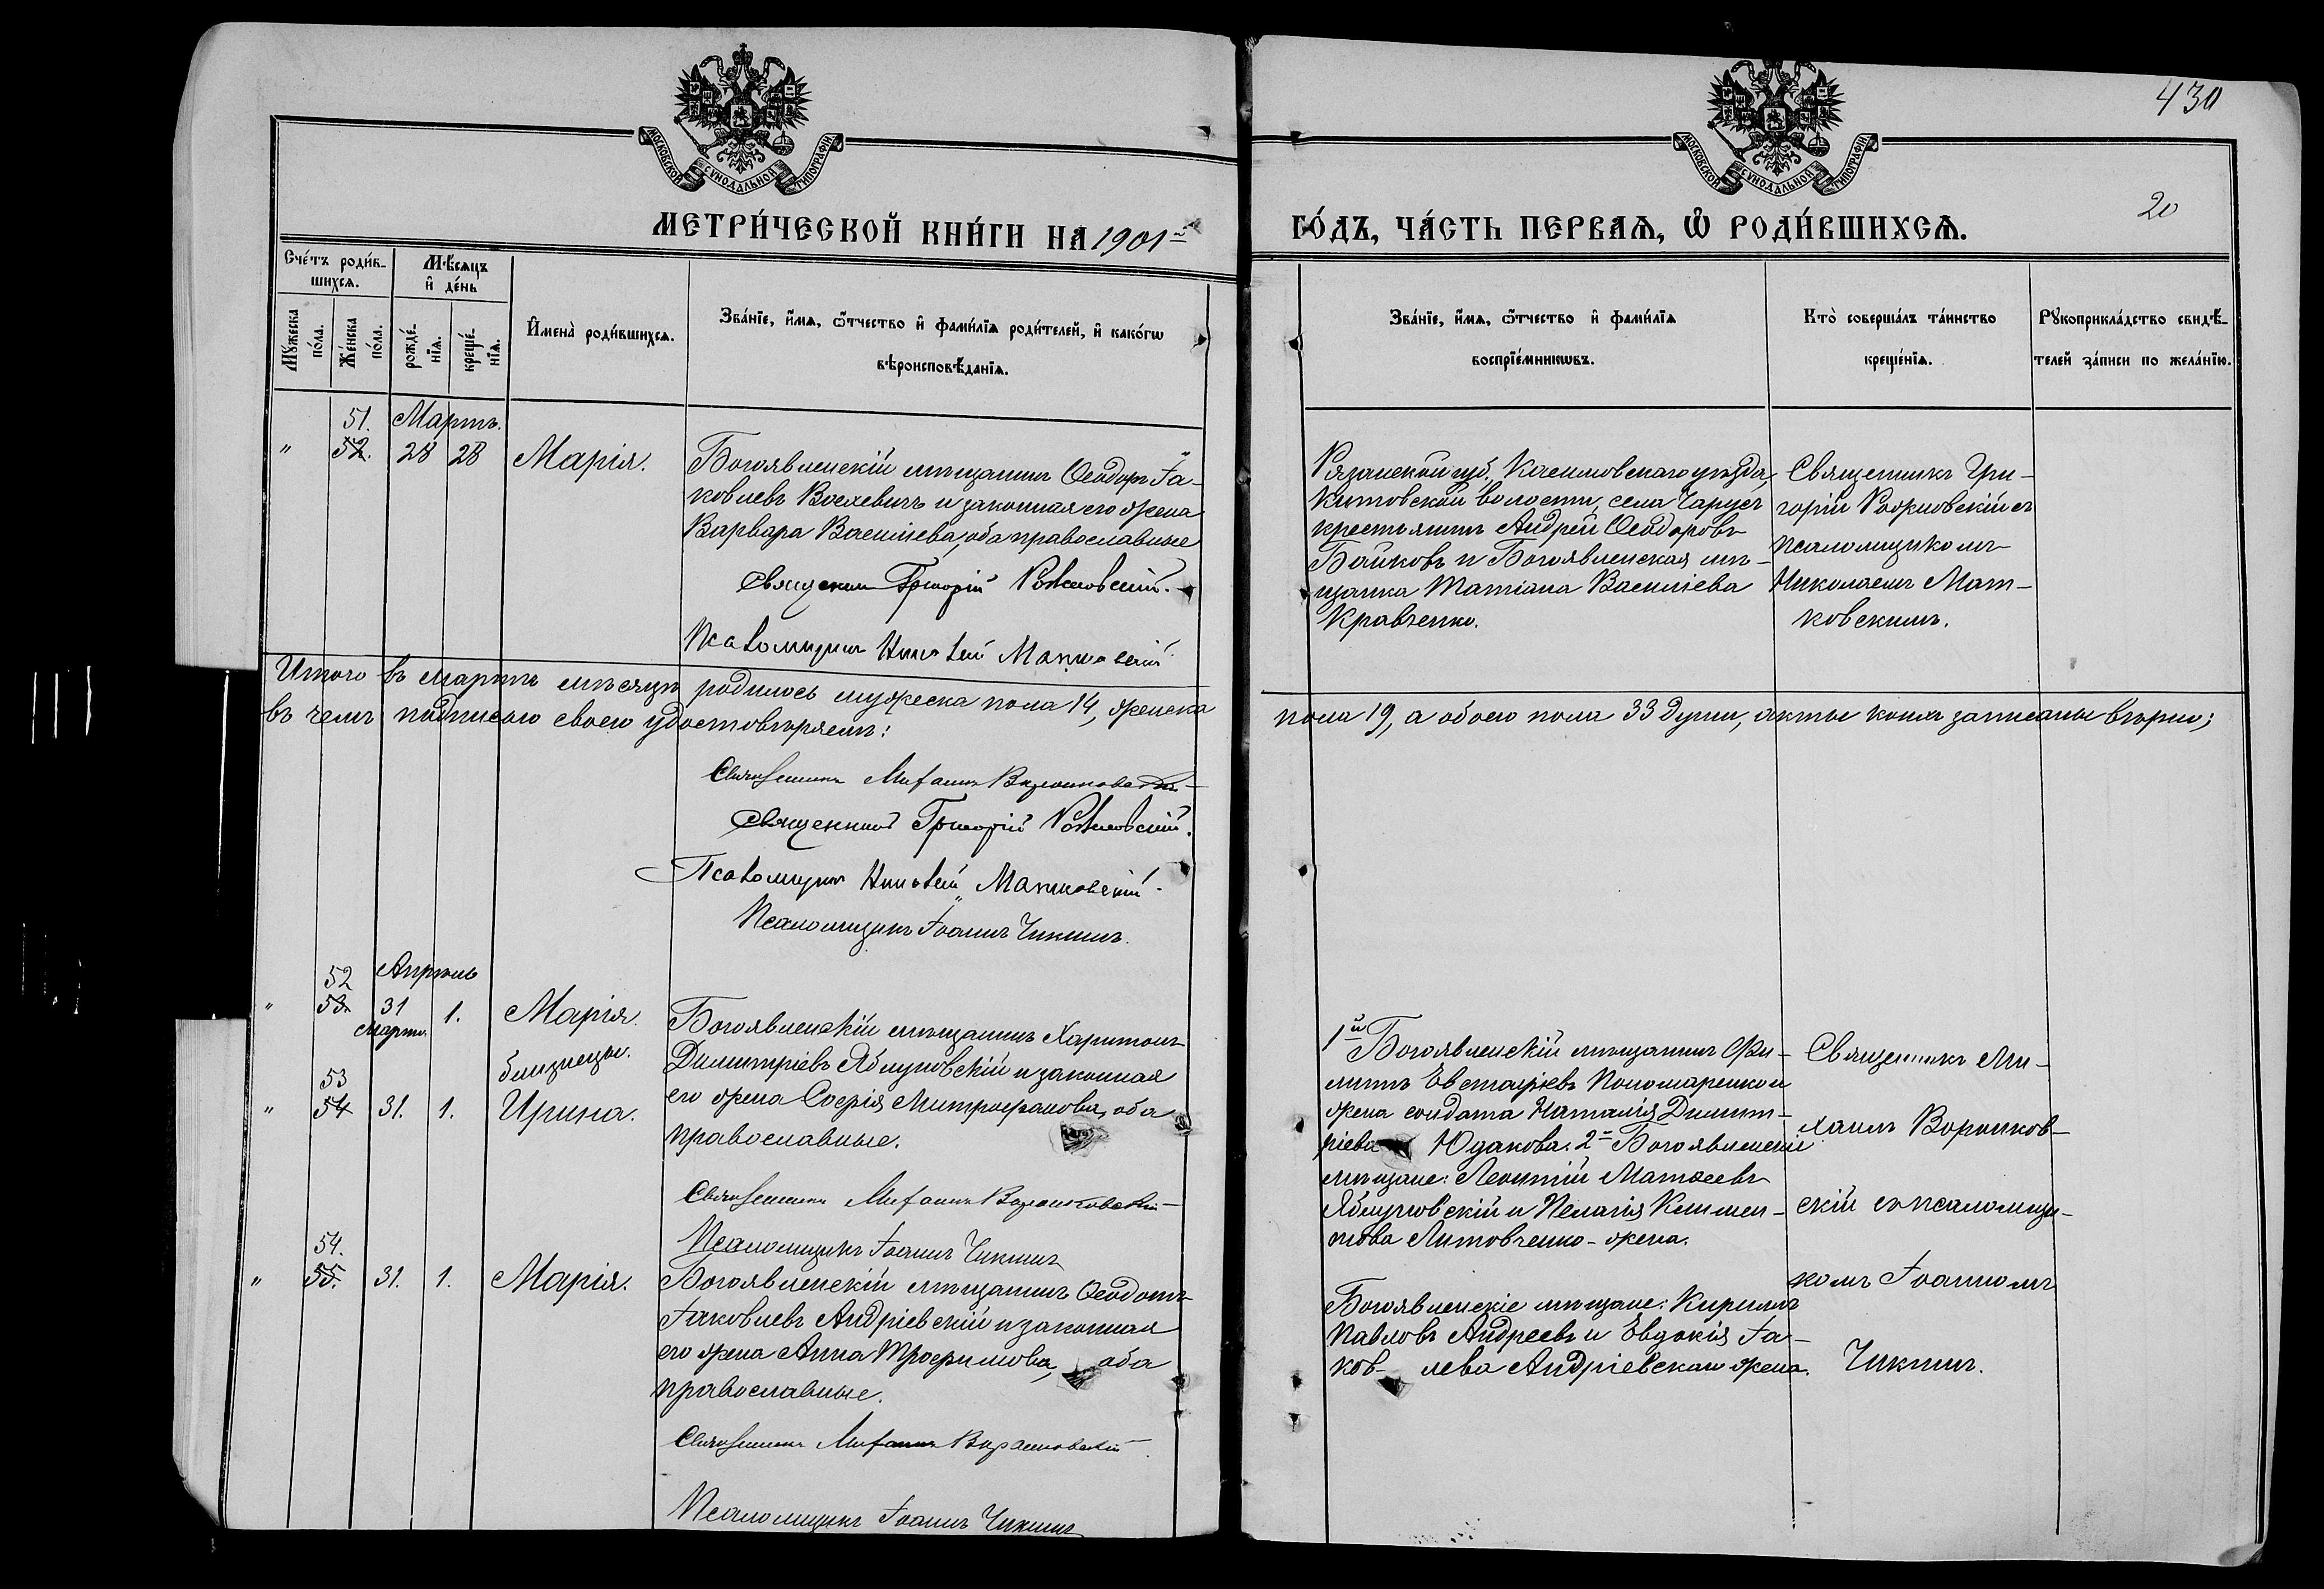 430
20
МОСКОВСКОЙ СѴНОДАЛЬНОЙ ТИПОГРАФІИ
МОСКОВСКОЙ СѴНОДАЛЬНОЙ ТИПОГРАФІИ
МЕТРИ́ЧЕСКОЙ КНИ́ГИ НА 1901й
ГО́ДЪ, ЧА́СТЬ ПЕРВАѦ, Ѽ РОДИ́ВШИХСѦ.
Сче́тъ роди́в-
шихсѧ.
Мѣ́сѧцъ
и҆ де́нь
Мꙋ́жеска
по́ла.
Же́нска
по́ла.
рожде́-
нїѧ.
креще́-
нїѧ.
И҆мена̀ роди́вшихсѧ.
Зва́нїе, и҆́мѧ, ѻ҆́тчество и҆ фами́лїѧ роди́телей, и҆ како́гѡ
вѣроисповѣ́данїѧ.
Зва́нїе, и҆́мѧ, ѻ҆́тчество и҆ фами́лїѧ
воспрїе́мникѡвъ.
Кто̀ соверша́лъ та́инство
креще́нїѧ.
Рꙋкоприкла́дство свидѣ́-
телей за́писи по жела́нїю.
51.
Мартъ.
" 52. 28 28 Марія.
Богоявленскій мѣщанинъ Ѳеодоръ Іа-
ковлевъ и законная его жена
Варвара Васильева, оба православные
Священникъ Григорій Рожновскій.
Псаломщикъ Николай Матковскій
Рязанской губ. Касимовскаго уѣзда,
волости, села Чарусъ
крестьянинъ Андрей Ѳеодоровъ
Байковъ и Богоявленская мѣ-
щанка Татіана Васильева
Кравченко.
Священникъ Гри-
горій Рожновскій съ
псаломщикомъ
Николаемъ Мат-
ковскимъ.
Итого въ мартѣ мѣсяцѣ родилось мужеска пола 14, женска
пола 19, а обоего пола 33 души, акты коихъ записаны вѣрно;
въ чемъ подписью своею удостовѣряемъ:
Священникъ Михаилъ Воронковскій
Священникъ Григорій Рожновскій.
Псаломщикъ Николай Матковскій.
Псаломщикъ Іоаннъ Чикинъ.
52
Апрѣль
" 53. 31 1. Марія.
Марта.
близнецы.
53
" 54 31. 1. Ирина.
Богоявленскій мѣщанинъ Харитонъ
Димитріевъ Яблуновскій и законная
его жена Софія Митрофанова, оба
православные.
Священникъ Михаилъ Воронковскій
Псаломщикъ Іоаннъ Чикинъ
1й Богоявленскій мѣщанинъ Фи-
липпъ Евстафіевъ Пономаренко и
жена солдата Наталія Димит-
ріева Юдакова. 2й Богоявленскіе
мѣщане: Леонтій Матѳеевъ
Яблуновскій и Пелагія Климен-
това Литовченко - жена.
Священникъ Ми-
хаилъ Воронков-
скій съ псаломщи-
комъ Іоанномъ
Чикинъ.
54.
" 55. 31. 1. Марія.
Богоявленскій мѣщанинъ Ѳеодотъ
Іаковлевъ Андріевскій и законная
его жена Анна Трофимова, оба
православные.
Священникъ Михаилъ Воронковскій
Псаломщикъ Іоаннъ Чикинъ
Богоявленскіе мѣщане: Кириллъ
Павловъ Андреевъ и Евдокія Іа-
ков- лева Андріевская жена.